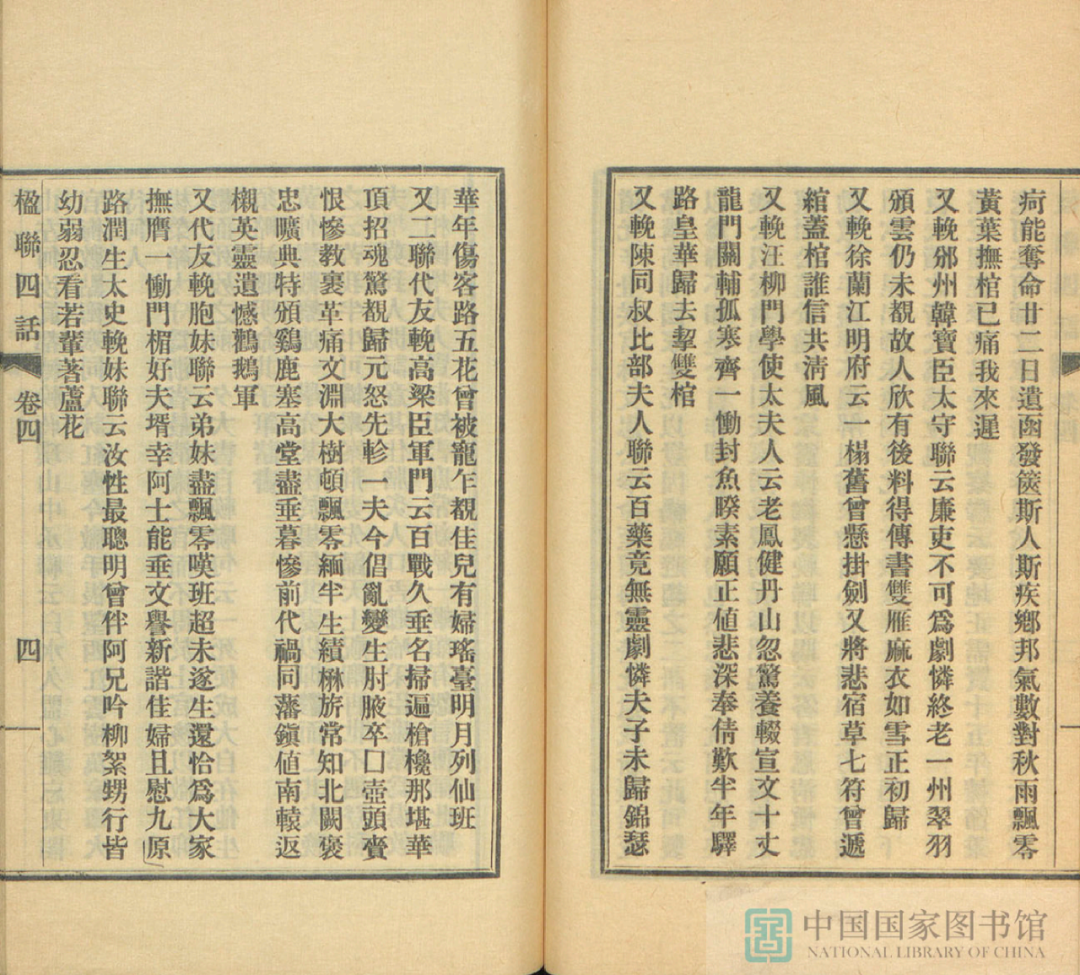 疴能奪命廿二日遺函發篋斯人斯疾鄉邦氣數對秋雨飄零
黃葉撫棺已痛我來遲
又輓邠州韓寶臣太守聯云廉吏不可爲劇憐終老一州翠羽
頒雲仍未覩故人欣有後料得傳書雙雁麻衣如雪正初歸
又輓徐蘭江明府云一榻舊曾懸掛劍又將悲宿草七符曾遞
綰蓋棺誰信共淸風
又輓汪柳門學使太夫人云老鳳健丹山忽驚養輟宣文十丈
龍門關輔孤寒齊一慟封魚睽素願正値悲深奉倩歎半年驛
路皇華歸去挈雙棺
又輓陳同叔比部夫人聯云百藥竟無靈劇憐夫子未歸錦瑟
華年傷客路五花曾被寵乍覩佳兒有婦瑤臺明月列仙班
又二聯代友輓高梁臣軍門云百戰久垂名掃逼槍欃那堪華
頂招魂驚覩歸元怒先軫一夫今倡亂變生肘腋卒口壺頭賫
恨慘敎裹革痛文淵大樹頓飄零緬半生績楙旂常知北闕褒
忠曠典特頒鷄鹿塞高堂盡垂暮慘前代禍同藩鎭値南轅返
櫬英靈遺憾鸛鵝軍
又代友輓胞妹聯云弟妹盡飄零嘆班超未遂生還恰爲大家
撫膺一慟門楣好夫壻幸阿士能垂文譽新諧佳婦且慰九原
路潤生太史輓妹聯云汝性最聰明曾伴阿兄吟柳絮甥行皆
幼弱忍看若輩著蘆花
楹聯四話
卷四
四
中国国家图书馆
NATIONAL LIBRARY OF CHINA